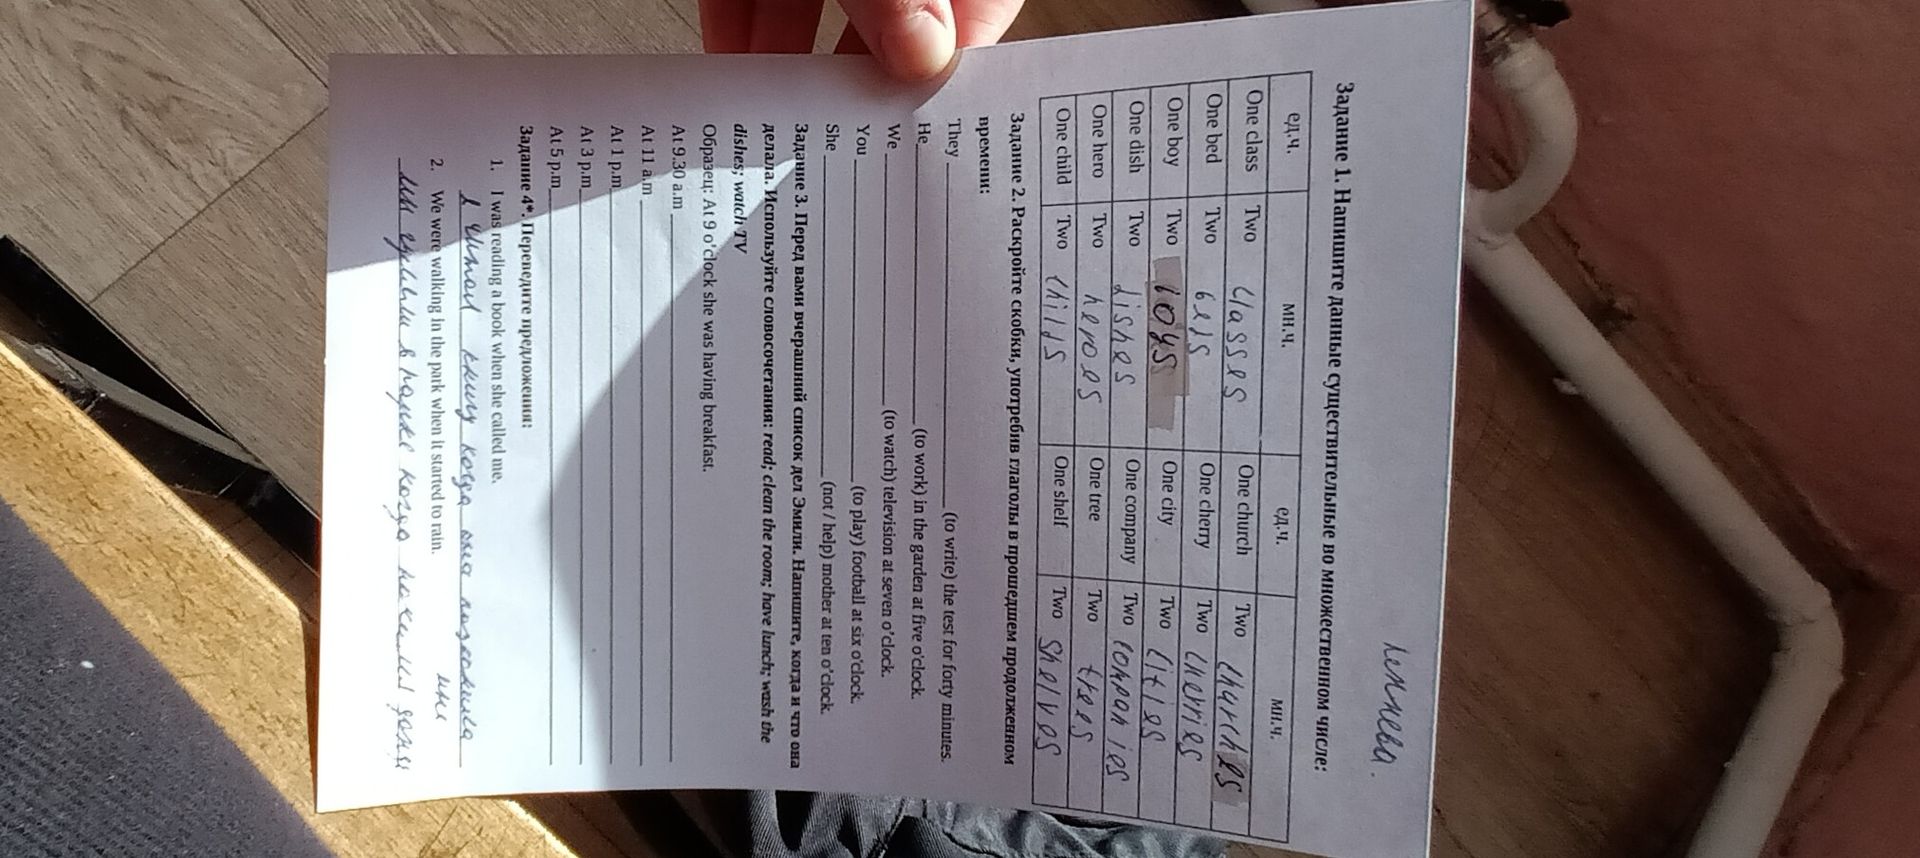 Задание 1. Напишите данные существительные во множественном числе:
ед.ч. мн.ч. ед.ч. мн.ч.
One class Two classes One church Two churches
One bed Two beds One cherry Two cherries
One boy Two boys One city Two cities
One dish Two dishes One company Two companies
One hero Two heroes One tree Two trees
One child Two childs One shelf Two shelves
Задание 2. Раскройте скобки, употребив глаголы в прошедшем продолженном
времени:
They (to write) the test for forty minutes.
He (to work) in the garden at five o'clock.
We (to watch) television at seven o'clock.
You (to play) football at six o'clock.
She (not / help) mother at ten o'clock.
Задание 3. Перед вами вчерашний список дел Эмили. Напишите, когда и что она
делала. Используйте словосочетания: read; clean the room; have lunch; wash the
dishes; watch TV
Образец: At 9 o'clock she was having breakfast.
At 9.30 a.m
At 11 a.m
At 1 p.m
At 3 p.m
At 5 p.m
Задание 4*. Переведите предложения:
1. I was reading a book when she called me.
я читал книгу когда она позвонила
мне
2. We were walking in the park when it started to rain.
мы гуляли в парке когда